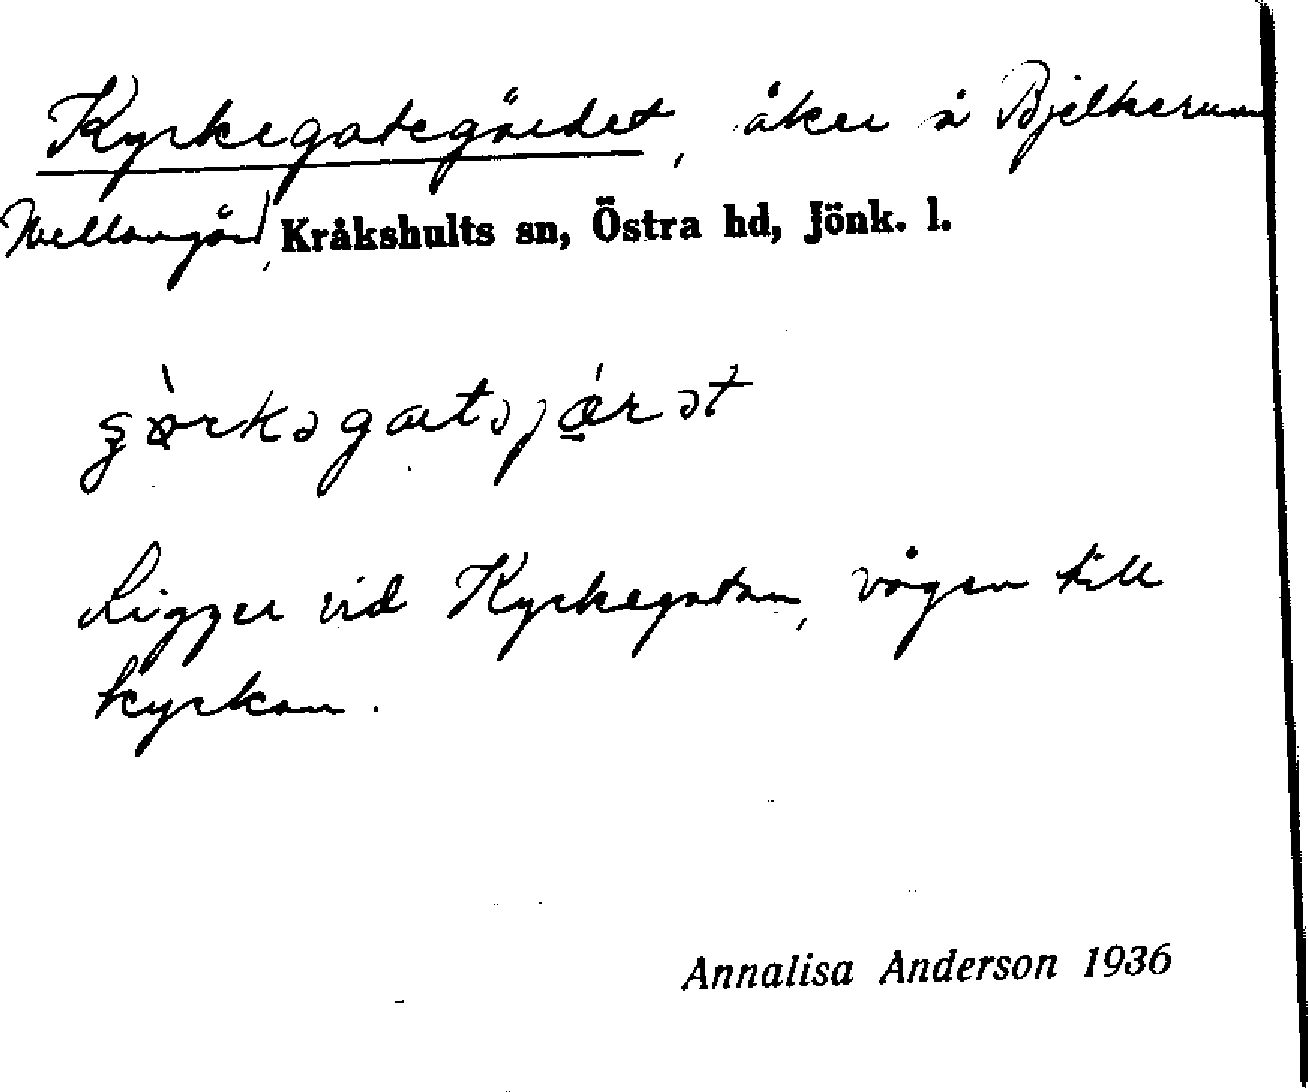 Kyrkegategärdet, åker å Bjelkerum
Mellangård, Kråkshults sn, Östra hd, Jönk. l.
Ligger vid Kyrkegatan, vägen till
kyrkan.
Annalisa Anderson 1936